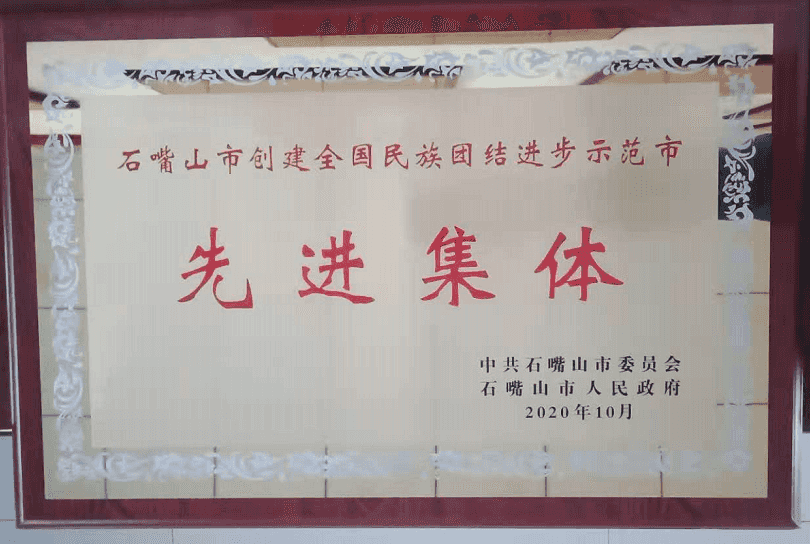 石嘴山市创建全国民族团结进步示范市
先进集体
中共石嘴山市委员会
石嘴山市人民政府
2020年10月